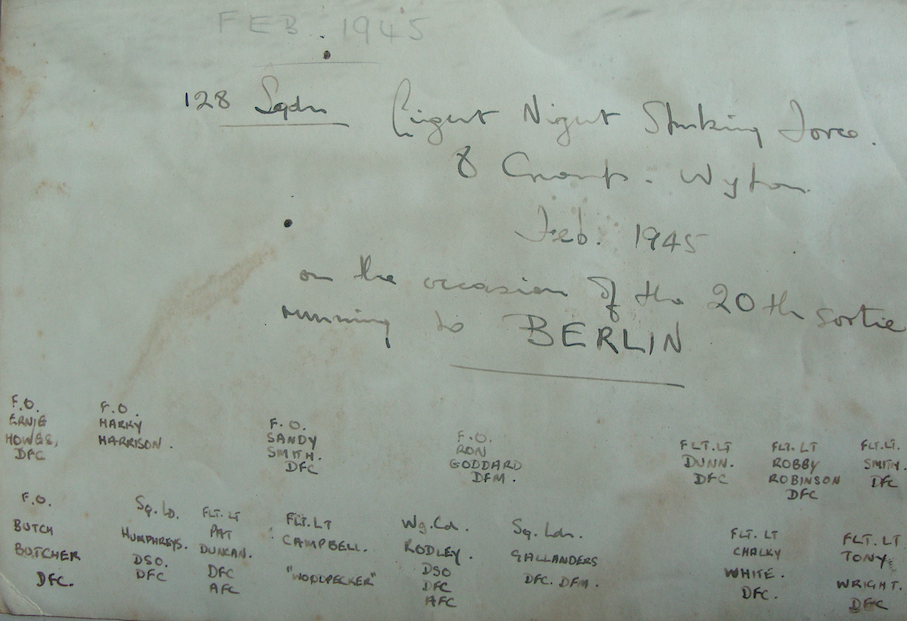 FEB. 1945
128 Sqdn Light Night Striking Force.
8 Group. Wyton.
Feb. 1945
on the occasion of the 20th sortie
running to BERLIN
F.O.
ERNIE
HOWES,
DFC
F.O.
HARRY
HARRISON.
F.O.
SANDY
SMITH.
DFC
F.O.
RON
GODDARD
DFM.
FLT.LT
DUNN.
DFC
FLT. LT
ROBBY
ROBINSON
DFC
FLT.LT.
SMITH.
DFC
F.O.
BUTCH
BUTCHER
DFC.
Sq. Ld.
HUMPHREYS.
DSO.
DFC
FLT. LT
PAT
DUNCAN.
DFC
AFC
FLT. LT
CAMPBELL.
"WOODPECKER"
Wg. Cd.
RODLEY.
DSO
DFC
AFC
Sq. Ldr.
GALLANDERS
DFC. DFM.
FLT. LT
CHALKY
WHITE.
DFC.
FLT. LT.
TONY
WRIGHT.
DFC